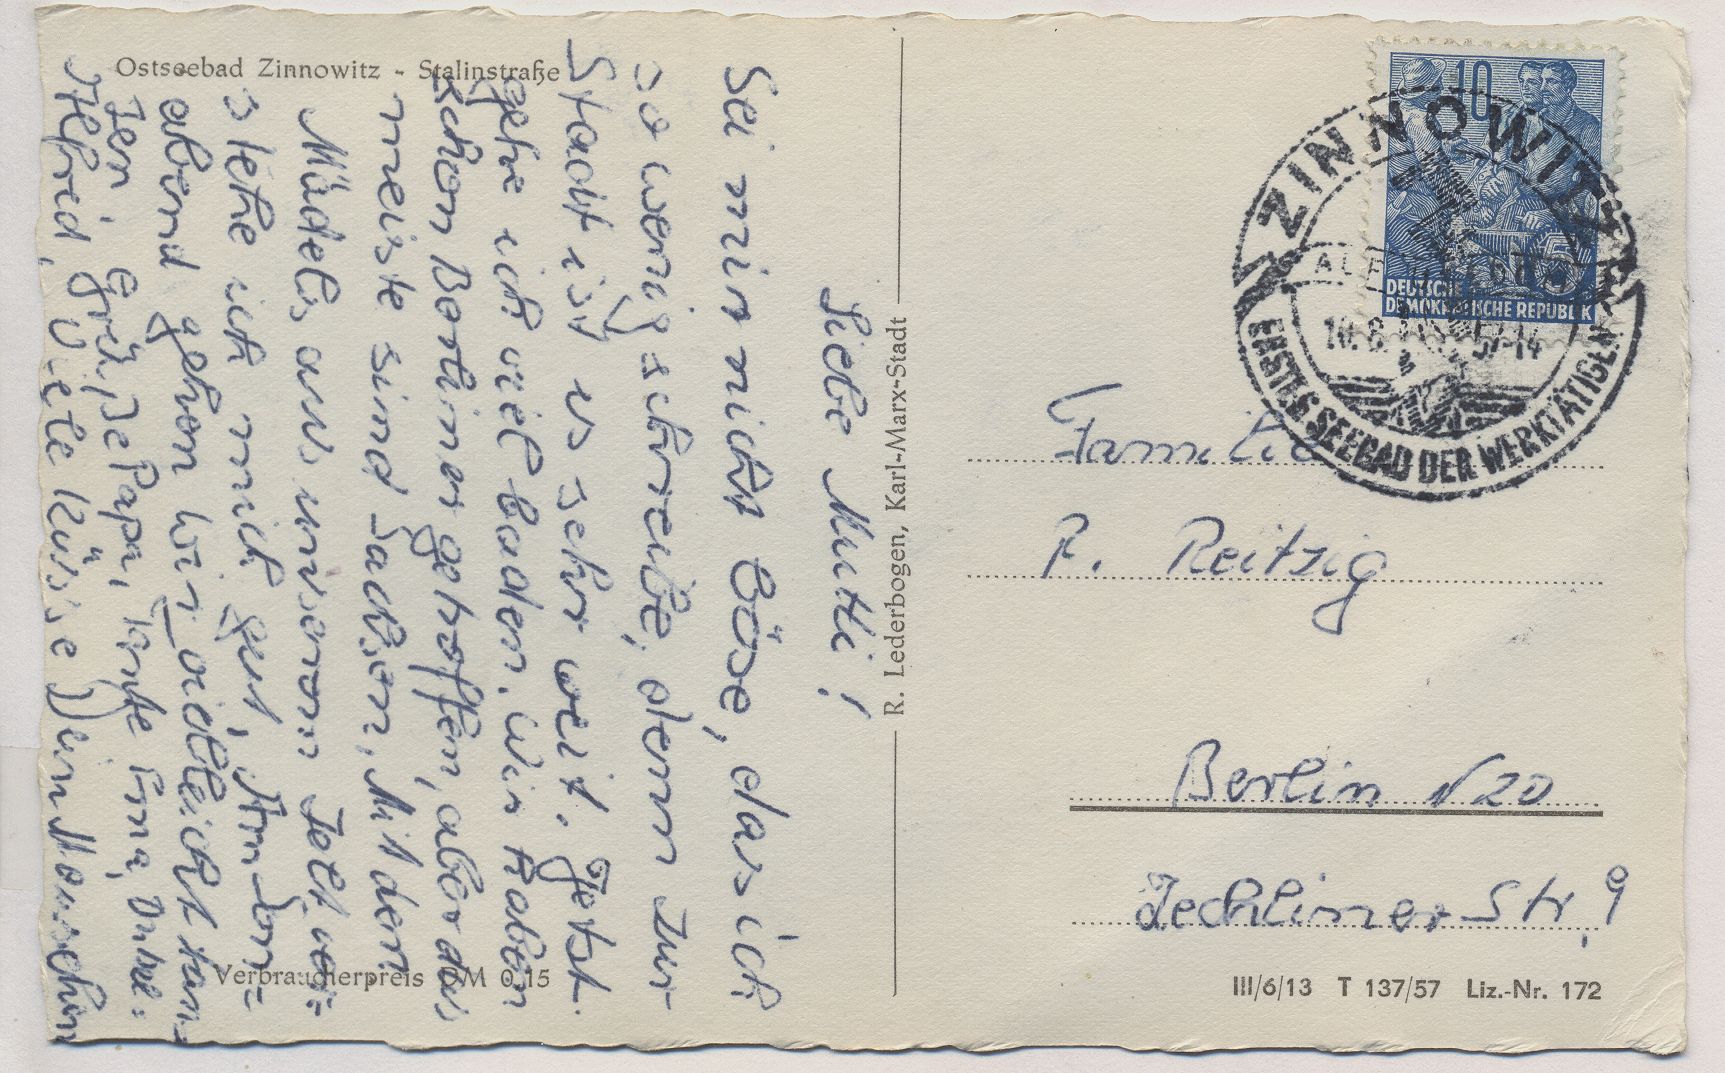 Ostseebad Zinnowitz - Stalinstraße
Liebe Mutti!
Sei mir nicht böse, das ich
so wenig schreibe, denn zur
Stadt ist es sehr weit. Jetzt
gehe ich viel baden. Wir haben
schon Berliner getroffen, aber das
meiste sind Sachsen, Mit den
Mädels aus unserem Zelt ver=
stehe ich mich gut, Am Sonn=
abend gehen wir vielleicht tan=
zen Grüße Papa, Tante Erna, Onkel
Alfred, Viele Küsse Dein Mäuschen
Verbraucherpreis DM 0,15
R. Lederbogen, Karl-Marx-Stadt
10
DEUTSCHE
DEMOKRATISCHE REPUBLIK
ZINNOWITZ
10.8. 57-14
ERSTES SEEBAD DER WERKTÄTIGEN
Familie
P. Reitzig
Berlin N20
Zechliner Str. 9
III/6/13 T 137/57 Liz.-Nr. 172